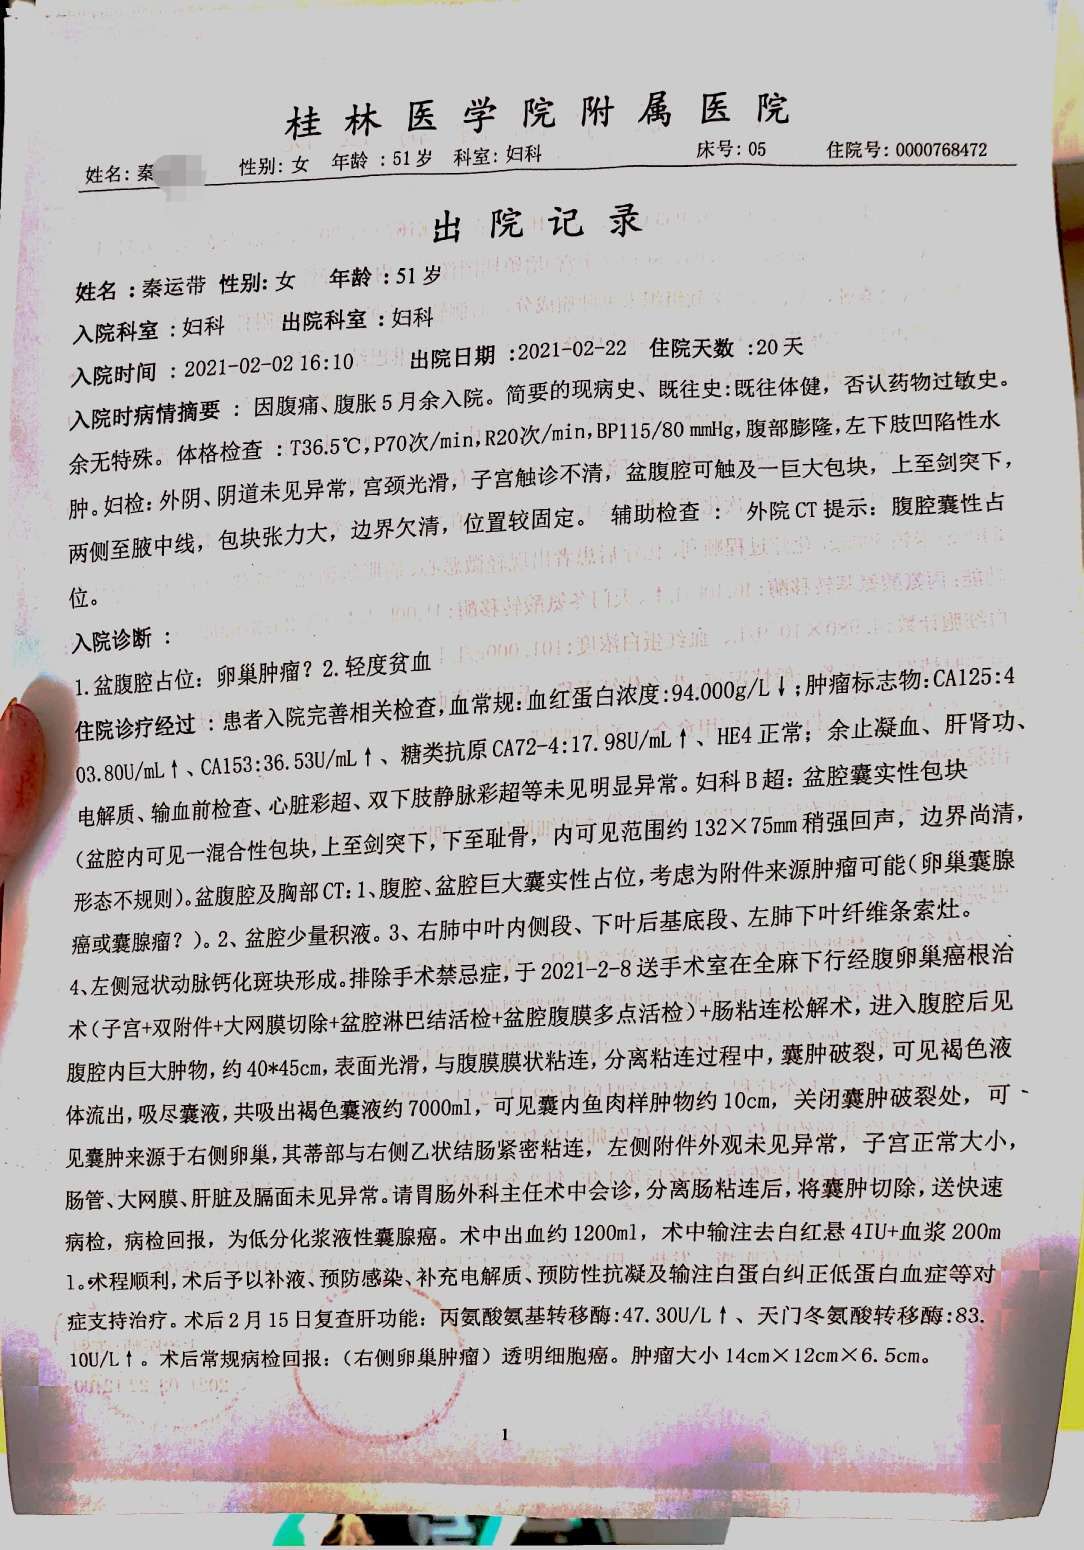 桂林医学院附属医院
姓名:秦 性别:女 年龄:51岁 科室:妇科 床号:05 住院号:0000768472
出院记录
姓名:秦运带 性别:女 年龄:51岁
入院科室:妇科 出院科室:妇科
入院时间:2021-02-02 16:10 出院日期:2021-02-22 住院天数:20天
入院时病情摘要:因腹痛、腹胀5月余入院。简要的现病史、既往史:既往体健,否认药物过敏史。
余无特殊。体格检查:T36.5℃,P70次/min,R20次/min,BP115/80 mmHg,腹部膨隆,左下肢凹陷性水
肿。妇检:外阴、阴道未见异常,宫颈光滑,子宫触诊不清,盆腹腔可触及一巨大包块,上至剑突下,
两侧至腋中线,包块张力大,边界欠清,位置较固定。 辅助检查: 外院CT提示:腹腔囊性占
位。
入院诊断:
1.盆腹腔占位:卵巢肿瘤?2.轻度贫血
住院诊疗经过:患者入院完善相关检查,血常规:血红蛋白浓度:94.000g/L↓;肿瘤标志物:CA125:4
03.80U/mL↑、CA153:36.53U/mL↑、糖类抗原CA72-4:17.98U/mL↑、HE4正常;余止凝血、肝肾功、
电解质、输血前检查、心脏彩超、双下肢静脉彩超等未见明显异常。妇科B超:盆腔囊实性包块
(盆腔内可见一混合性包块,上至剑突下,下至耻骨,内可见范围约132×75mm稍强回声,边界尚清,
形态不规则)。盆腹腔及胸部CT:1、腹腔、盆腔巨大囊实性占位,考虑为附件来源肿瘤可能(卵巢囊腺
癌或囊腺瘤?)。2、盆腔少量积液。3、右肺中叶内侧段、下叶后基底段、左肺下叶纤维条索灶。
4、左侧冠状动脉钙化斑块形成。排除手术禁忌症,于2021-2-8送手术室在全麻下行经腹卵巢癌根治
术(子宫+双附件+大网膜切除+盆腔淋巴结活检+盆腔腹膜多点活检)+肠粘连松解术,进入腹腔后见
腹腔内巨大肿物,约40*45cm,表面光滑,与腹膜膜状粘连,分离粘连过程中,囊肿破裂,可见褐色液
体流出,吸尽囊液,共吸出褐色囊液约7000ml,可见囊内鱼肉样肿物约10cm,关闭囊肿破裂处,可
见囊肿来源于右侧卵巢,其蒂部与右侧乙状结肠紧密粘连,左侧附件外观未见异常,子宫正常大小,
肠管、大网膜、肝脏及膈面未见异常。请胃肠外科主任术中会诊,分离肠粘连后,将囊肿切除,送快速
病检,病检回报,为低分化浆液性囊腺癌。术中出血约1200ml,术中输注去白红悬4IU+血浆200m
l。术程顺利,术后予以补液、预防感染、补充电解质、预防性抗凝及输注白蛋白纠正低蛋白血症等对
症支持治疗。术后2月15日复查肝功能:丙氨酸氨基转移酶:47.30U/L↑、天门冬氨酸转移酶:83.
10U/L↑。术后常规病检回报:(右侧卵巢肿瘤)透明细胞癌。肿瘤大小14cm×12cm×6.5cm。
1